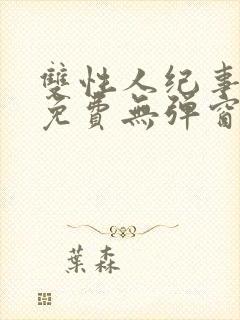 雙性人纪事
免費無彈窗
葉森